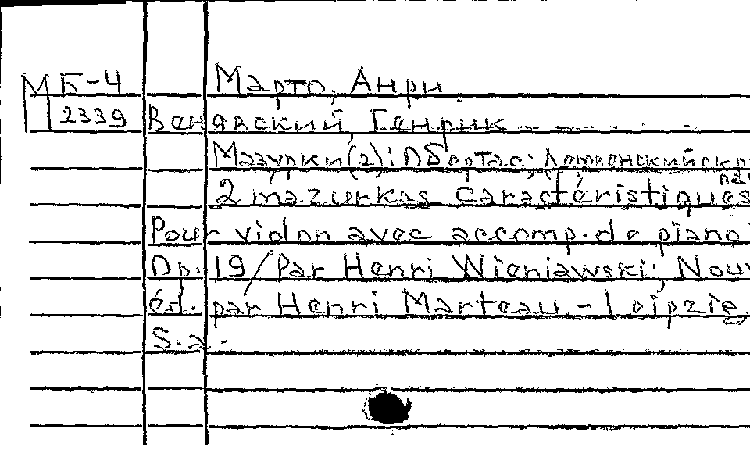 МБ-4 Марто, Анри.
2339 Венявский, Генрик
Мазурки (2): Обертас;
2 mazurkas caractéristiques
Pour violon avec accomp. de piano
Op. 19 / Par Henri Wieniawski; Nouv
éd. par Henri Marteau. - Leipzig
S.a.